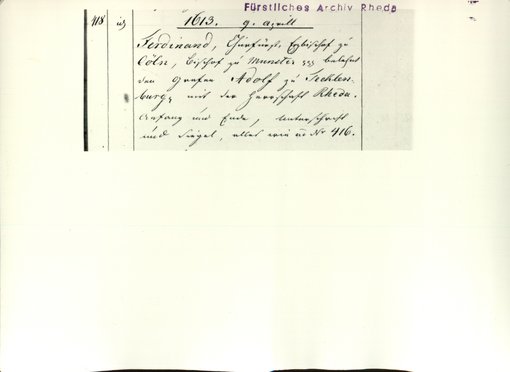 Fürstliches Archiv Rheda
418
1613. 9. Aprill
Ferdinand, Churfürst, Erzbischof zu
Cöln, Bischof zu Münster belehnt
den Grafen Adolf zu Tecklen-
burg, mit der Herrschaft Rheda.
Anfang und Ende, Unterschrift
und Siegel, alles wie in No 416.